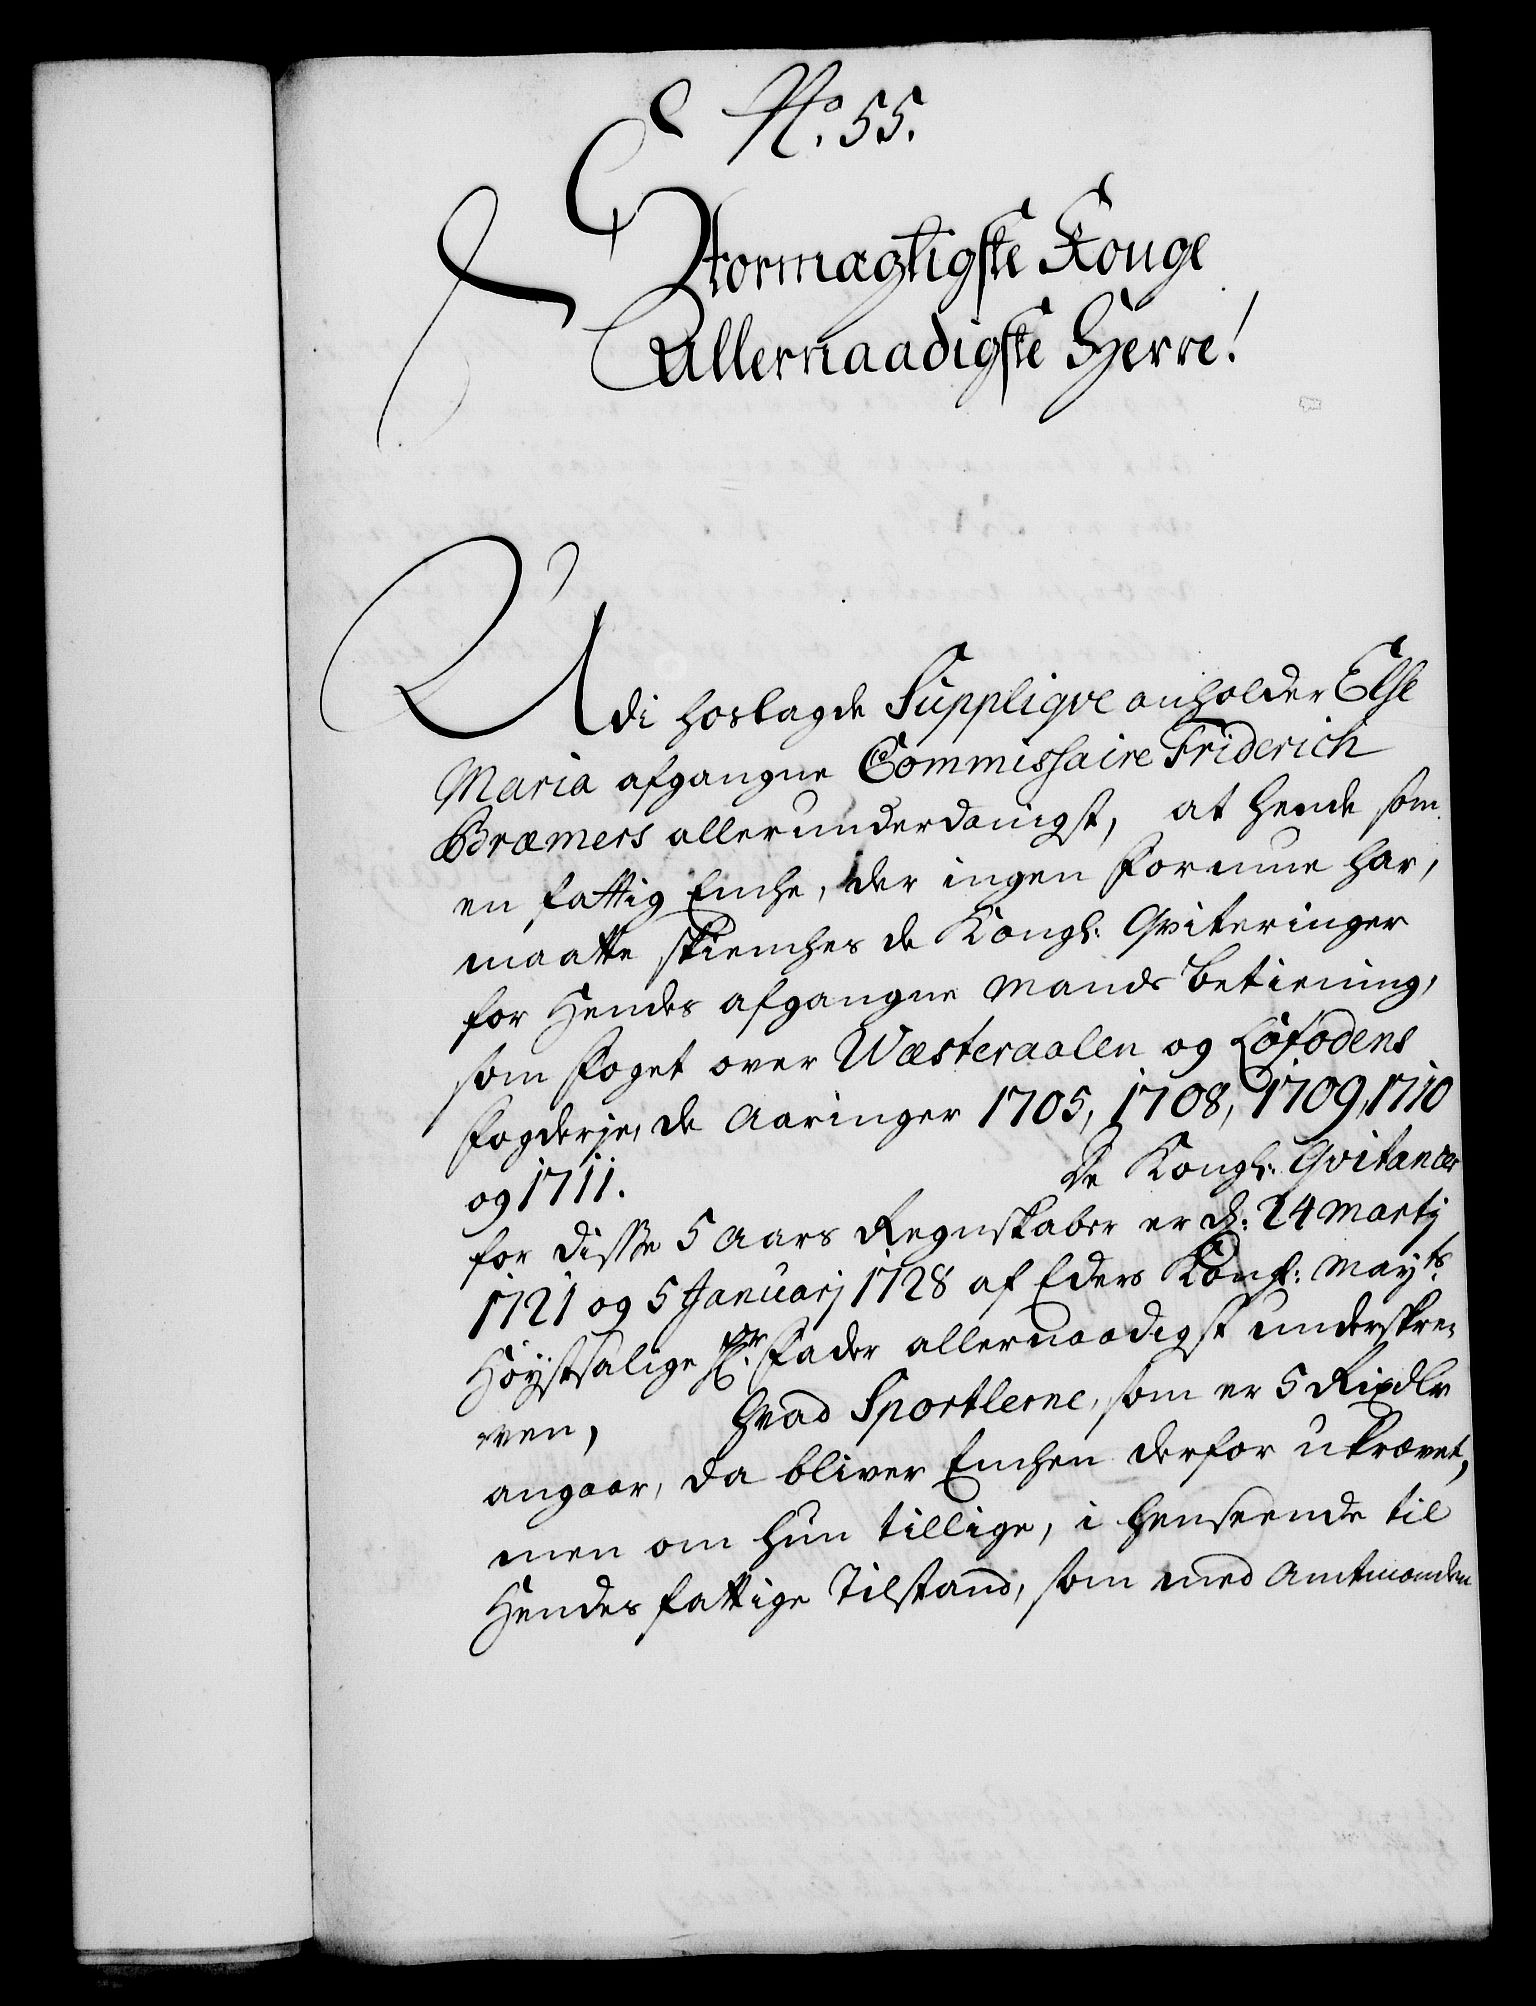 No. 55.
Stormægtigste Konge
Allernaadigste Herre!
Udi hoslagde Supplique anholder Else
Maria afgangne Commissaire Friderich
Bræmers allerunderdanigst, at hende som
en fattig Enche, der ingen Formue har,
maatte skienches de Kongl: Qviteringer
for Hendes afgangne Mands betiening,
som Foget over Wæsteraalen og Lofodens
Fogderje, de Aaringer 1705, 1708, 1709, 1710
og 1711. De Kongl: Qvitancer
for disse 5 Aars Regnskaber er d: 24 Martj
1721 og 5 Januarj 1728 af Eders Kongl: Mayts.
Høystsalige Hr. Fader allernaadigst underskre-
ven, Hvad Sportlerne, som er 5 Rixdlr
angaar, da bliver Enchen derfor ukrævet,
men om hun tillige, i henseende til
Hendes fattige Tilstand, som med Amtmanden